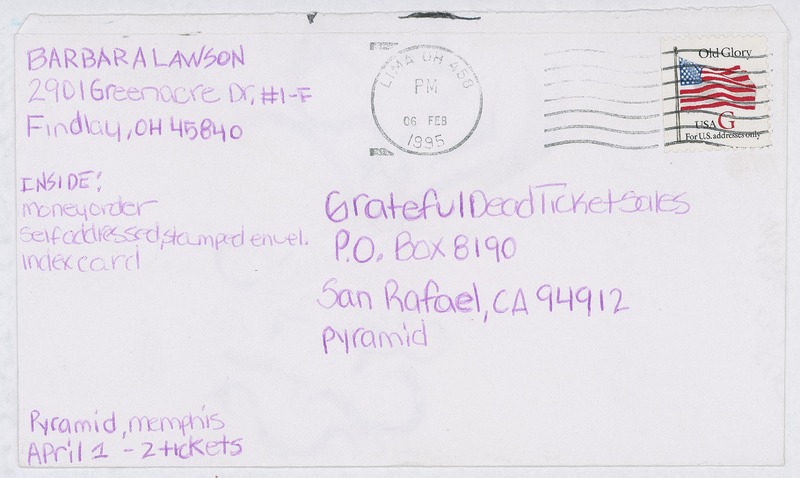 BARBARA LAWSON
2901 Greenacre Dr. #1-F
Findlay, OH 45840
LIMA OH 458
PM
06 FEB
1995
Old Glory
USA G
For U.S. addresses only
INSIDE:
money order
self addressed, stamped envel.
index card
Grateful Dead Ticket Sales
P.O. Box 8190
San Rafael, CA 94912
pyramid
Pyramid, memphis
April 1 - 2 tickets